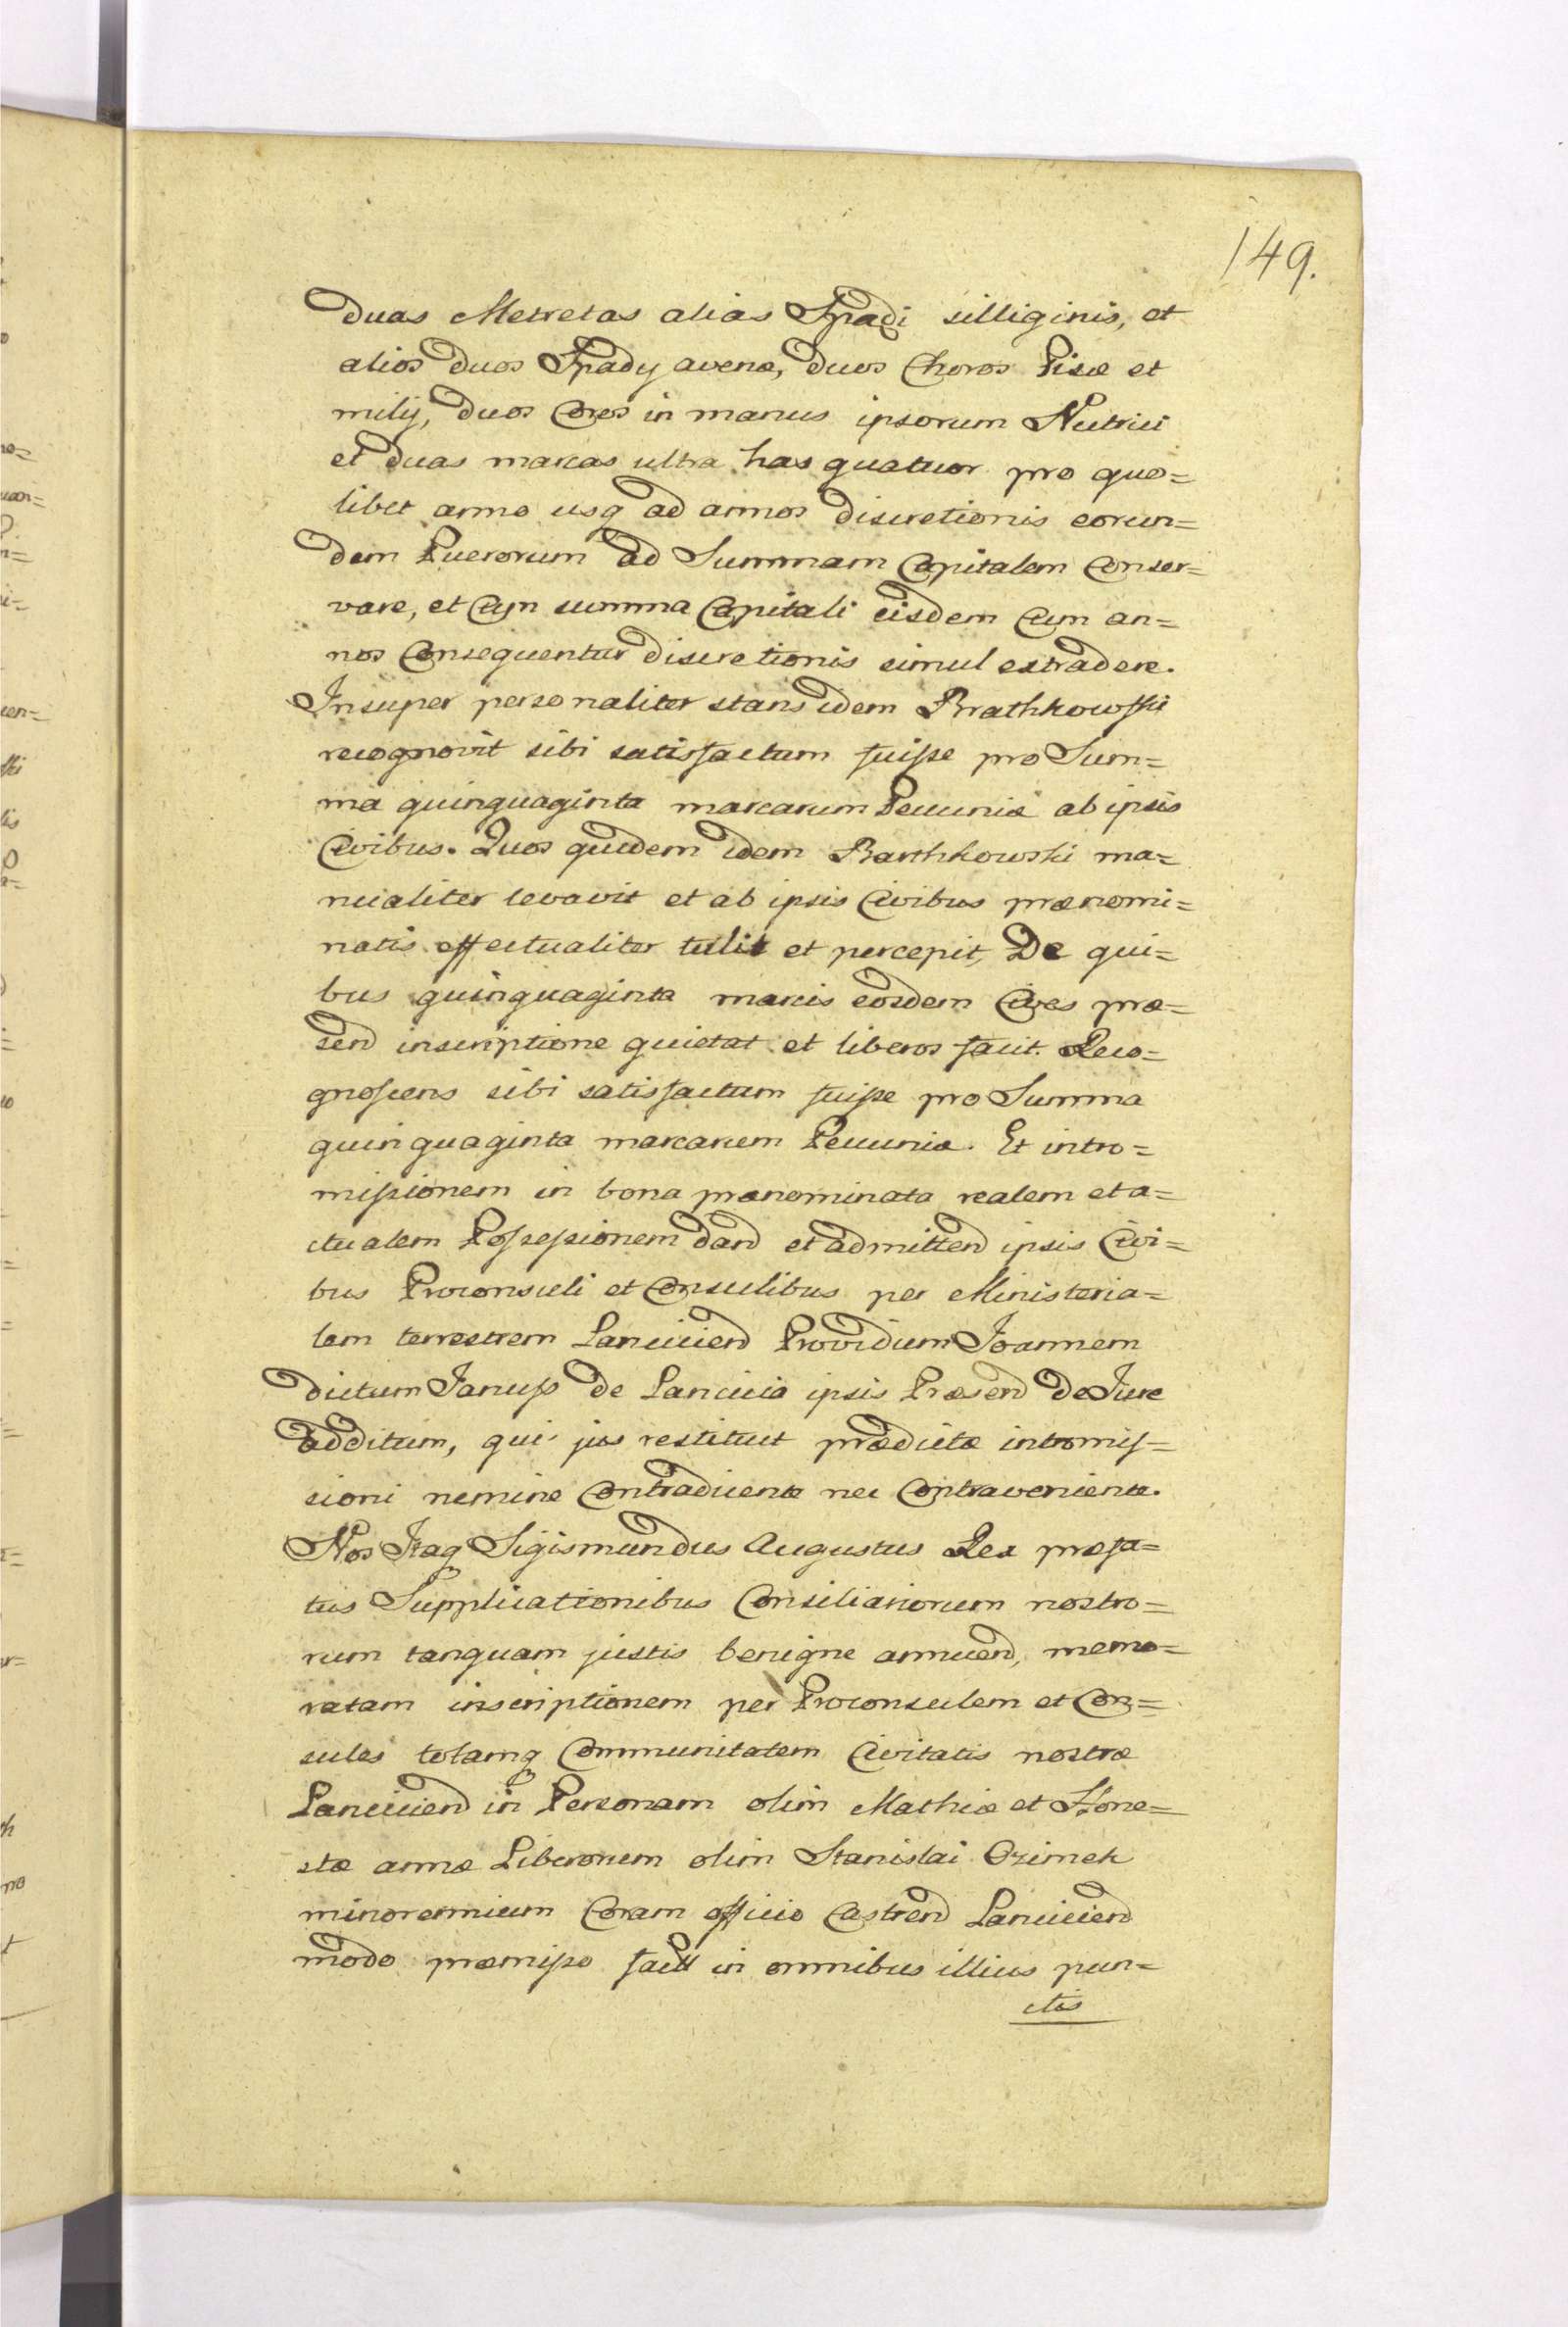 149.
duas Metretas alias Spadi silliginis, et
alios duos Spady avenæ, duos Choros Pisæ et
milij, duos Coros in manus ipsorum Nutrici
et duas marcas ultra has quatuor pro quo=
libet anno usq ad annos discretionis eorun=
dem Puerorum ad Summam Capitalem Conser=
vare, et Cum summa Capitali eisdem Cum an=
nos Consequentur discretionis simul extradere.
Insuper personaliter stans idem Brathkowski
recognovit sibi satisfactum fuisse pro Sum=
ma quinquaginta marcarum Pecuniæ ab ipsis
Civibus. Quos quidem idem Barthkowski ma=
nualiter levavit et ab ipsis Civibus prænomi=
natis effectualiter tulit et percepit, De qui=
bus quinquaginta marcis eosdem Cives præ=
send inscriptione quietat et liberos facit. Reco=
gnoscens sibi satisfactum fuisse pro Summa
quinquaginta marcarum Pecuniæ. Et intro=
missionem in bona prænominata realem et a=
ctualem Possessionem dand et admittend ipsis Civi=
bus Proconsuli et Consulibus per Ministeria=
lem terrestrem Lanciciend Providum Joannem
dictum Janusz de Lancicia ipsis Præsend de Jure
additum, qui jus restituit prædictæ intromis=
sioni nemine Contradicente nec Contraveniente.
Nos Itaq Sigismundus Augustus Rex præfa=
tus Supplicationibus Consiliariorum nostro=
rum tanquam justis benigne annuend, memo=
ratam inscriptionem per Proconsulem et Con=
sules totamq Communitatem Civitatis nostræ
Lanciciend in Personam olim Mathiæ et Hone=
stæ annæ Liberorum olim Stanislai Ozimek
minorennium Coram officio Castrend Lanciciend
modo præmisso fact in omnibus illius pun=
ctis